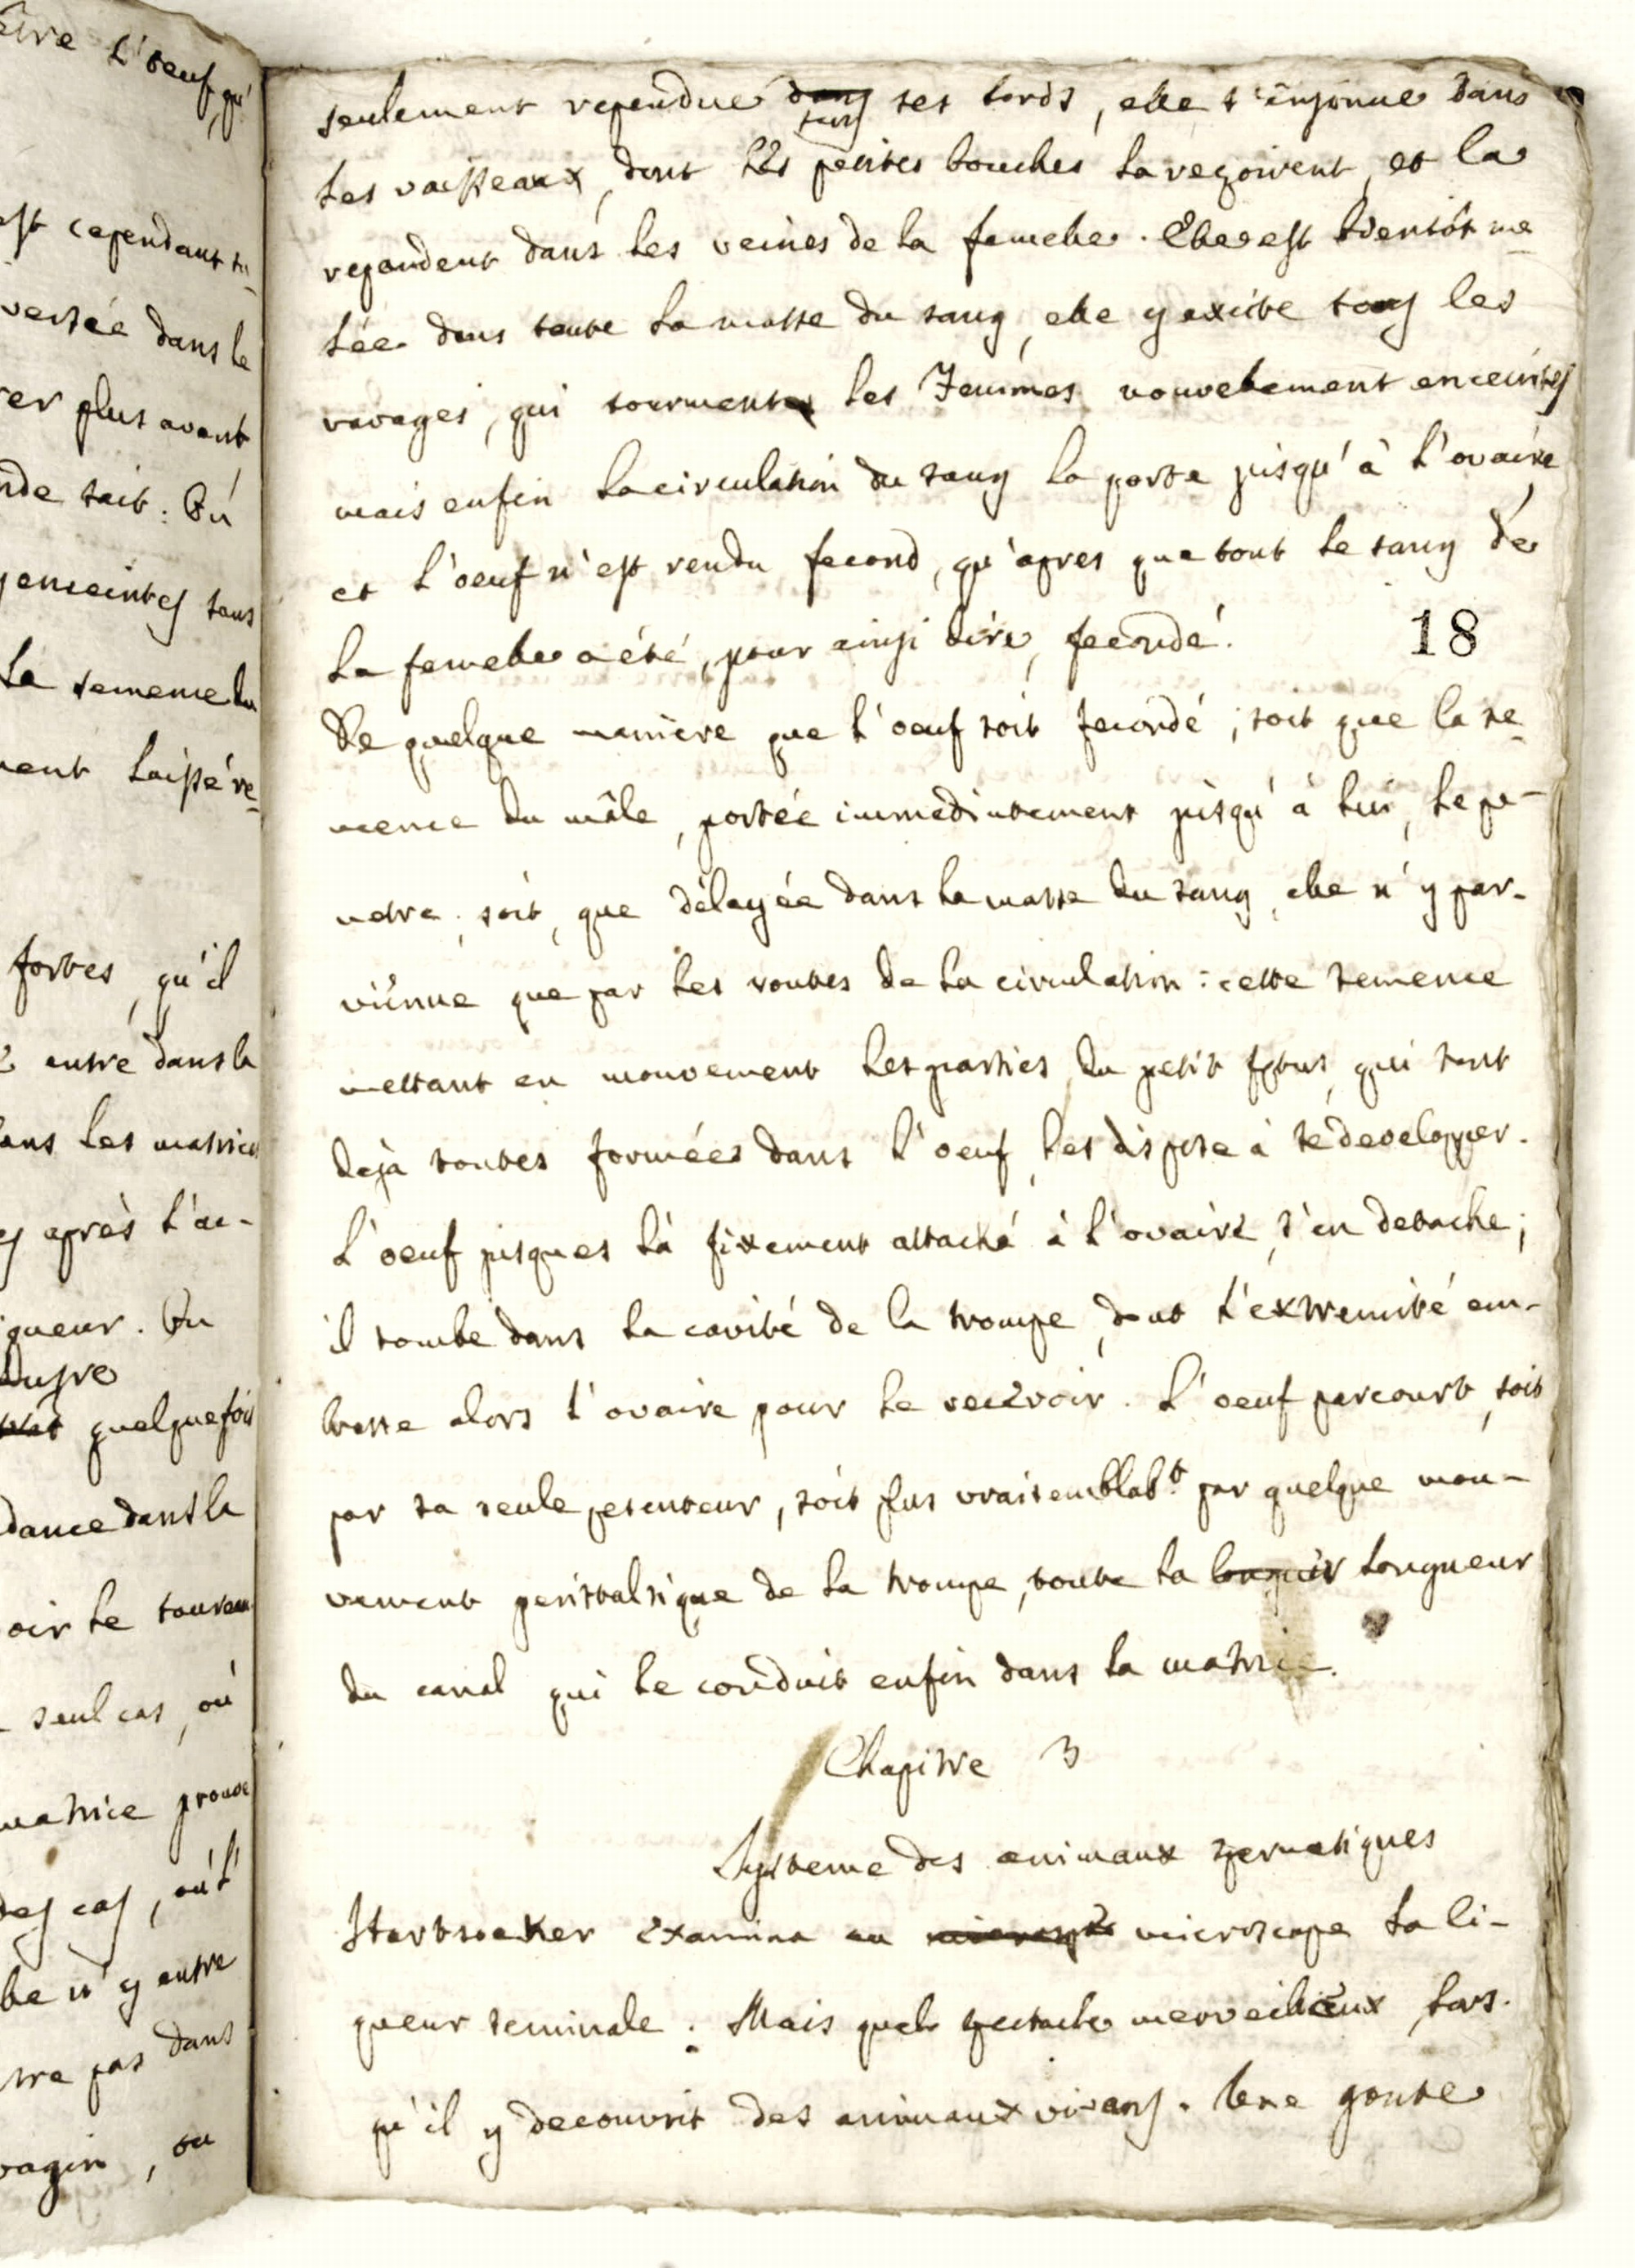 être l'oeuf, qu'
est cependant tr
versée dans le
rer plus avant
nde sait: On
enceintes sans
La semence du
ment laissé re-
fortes, qu'il
entré dans la
ans les matrices
es après l'ac-
igueur. On
quelquefois
dance dans la
oir le taureau
seul cas, où
matrice prouve
des cas, où l'
lle n'y entre
tre pas dans
vagin, ou
seulement rependue dans sur ses bords, elle s'insinue dans
les vaisseaux, dont les petites bouches la reçoivent, et la
rependent dans les veines de la femelle. Elle est bientôt me-
lée dans toute la masse du sang, elle y excite tous les
ravages, qui tourmentent les Femmes nouvellement enceintes
mais enfin la circulation du sang la porte jusqu'à l'ovaire,
et l'oeuf n'est rendu fecond, qu'apres que tout le sang de
la femelle a été, pour ainsi dire, fecondé.
18
De quelque manière que l'oeuf soit fecondé; soit que la se-
mence du mâle, portée immediatement jusqu'à lui, le pe-
netre, soit, que délayée dans la masse du sang, elle n'y par-
vienne que par les routes de la circulation: cette semence
mettant en mouvement les parties du petit fœtus, qui sont
deja toutes formées dans l'oeuf, les dispose à se developper.
L'oeuf jusques là fixement attaché à l'ovaire, s'en detache;
il tombe dans la cavité de la trompe, dont l'extremité em-
brasse alors l'ovaire pour le recevoir. L'oeuf parcourt, soit
par sa seule pesenteur, soit plus vraisemblabt. par quelque mou-
vement peristaltique de la trompe, toute la longuer longueur
du canal qui le conduit enfin dans la matrice.
Chapitre 3
Systeme des animaux spermatiques
Hartsoeker examina au microsp microscope la li-
queur seminale. Mais quel spectacle merveilleux, lors-
qu'il y decouvrit des animaux vivans. Une goute